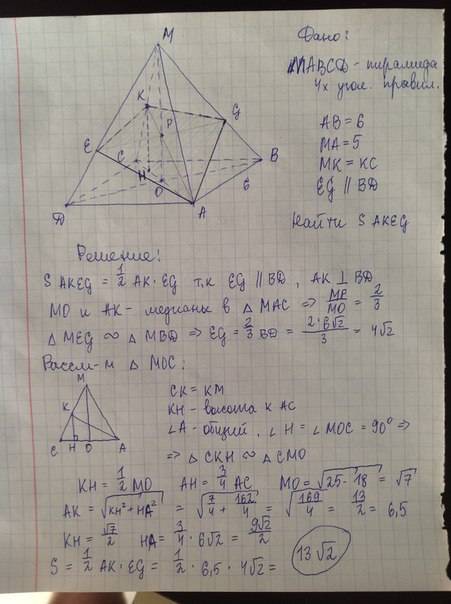 Дано:
MABCD - пирамида
4х угол. правил.
AB = 6
MA = 5
MK = KC
EG || BD
Найти S AKEG
M
K
G
P
E
C
B
H
O
6
D
A
Решение:
S AKEG = 1/2 AK · EG т.к EG || BD, AK ⊥ BD
MO и AK - медианы в △ MAC ⇒ MP/MO = 2/3
△ MEG ∾ △ MBD ⇒ EG = 2/3 BD = 2·6√2/3 = 4√2
Рассм-м △ MOC:
M
K
C H O A
CK = KM
KH - высота к AC
∠A - общий, ∠H = ∠MOC = 90° ⇒
⇒ △ CKH ∾ △ CMO
KH = 1/2 MO AH = 3/4 AC MO = √(25-18) = √7
AK = √(KH² + HA²) = √(7/4 + 162/4) = √(169/4) = 13/2 = 6,5
KH = √7/2 HA = 3/4 · 6√2 = 9√2/2
S = 1/2 AK · EG = 1/2 · 6,5 · 4√2 = 13√2